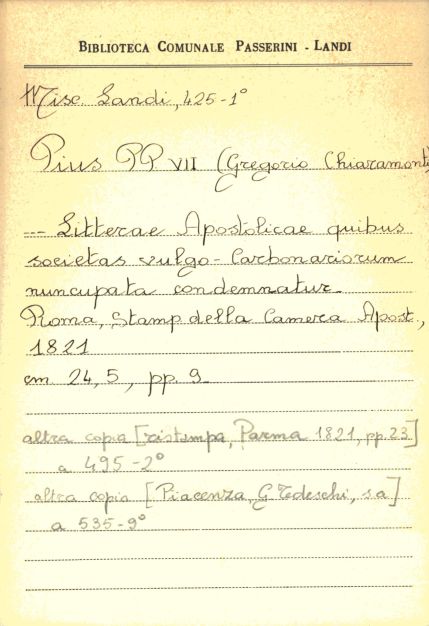 BIBLIOTECA COMUNALE PASSERINI - LANDI
Misc. Landi, 425-1°
Pius PP VII (Gregorio Chiaramonti
--- Litterae Apostolicae quibus
societas vulgo-Carbonariorum
nuncupata condemnatur-
Roma, Stamp. della Camera Apost.,
1821
cm. 24,5, pp. 9-
altra copia [ristampa, Parma 1821, pp. 23]
a 495-2°
altra copia [Piacenza, G Tedeschi, s a]
a 535-9°